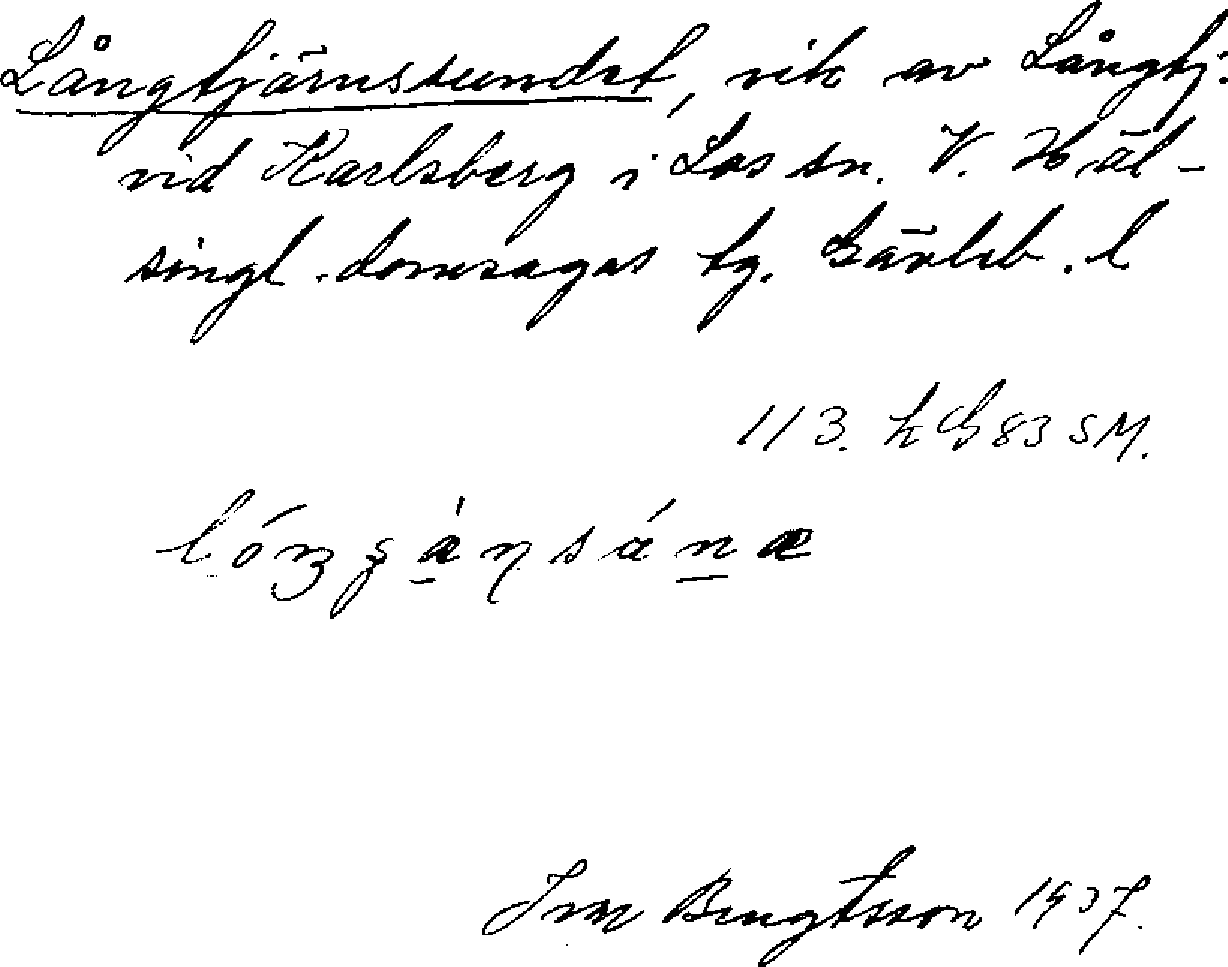 Långtjärnssundet, vik av Långtj.
vid Karlsberg i Los sn. V. Häl-
singl. domsagas tg. Gävleb. l
113. h G 83 SM.
Bengtsson 1937.